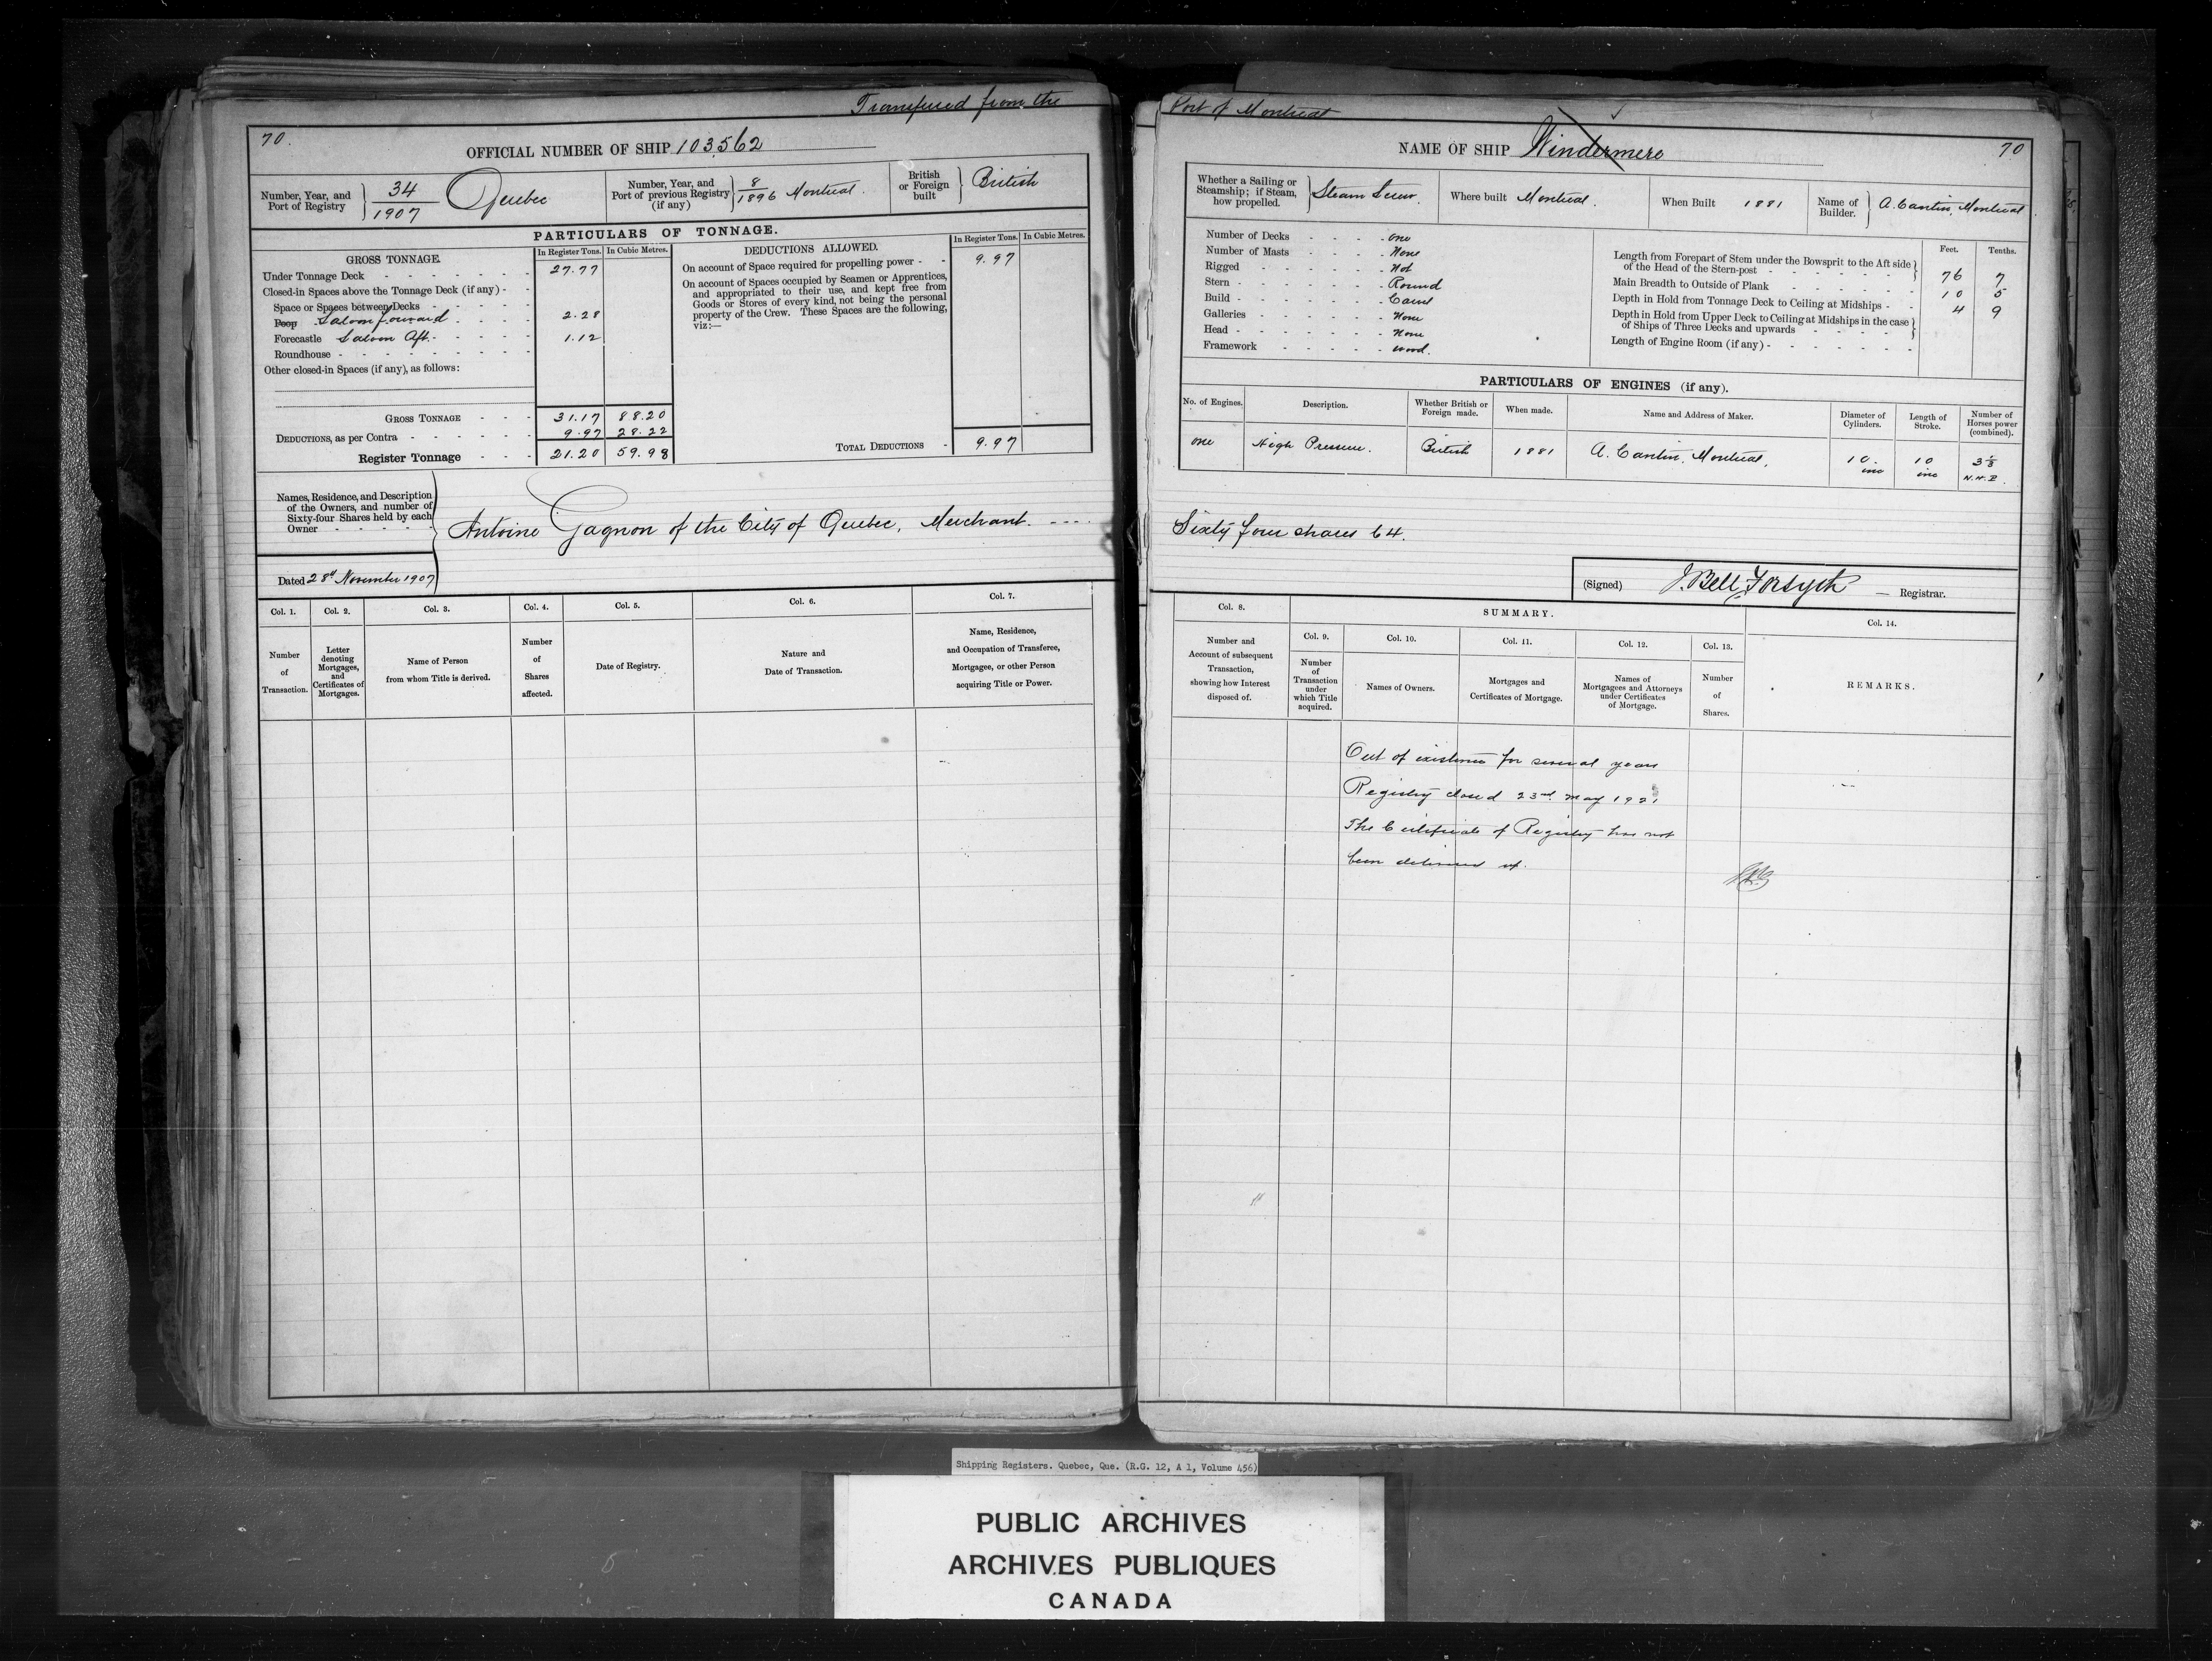 Transferred from the
70.
OFFICIAL NUMBER OF SHIP 103,562
Number, Year, and Port of Registry } 34/1907 Quebec
Number, Year, and Port of previous Registry (if any) } 8/1896 Montreal.
British or Foreign built } British
PARTICULARS OF TONNAGE.
GROSS TONNAGE.
In Register Tons.
In Cubic Metres.
Under Tonnage Deck - - - - - - - 27.77
Closed-in Spaces above the Tonnage Deck (if any) - -
Space or Spaces between Decks - - - - -
Poop Saloon forward - - - - 2.28
Forecastle Saloon Aft. - - - - - 1.12
Roundhouse - - - - - - - - -
Other closed-in Spaces (if any), as follows:
GROSS TONNAGE - - - 31.17 88.20
DEDUCTIONS, as per Contra - - - - - - 9.97 28.22
Register Tonnage - - - 21.20 59.98
DEDUCTIONS ALLOWED.
In Register Tons.
In Cubic Metres.
On account of Space required for propelling power - - 9.97
On account of Spaces occupied by Seamen or Apprentices,
and appropriated to their use, and kept free from
Goods or Stores of every kind, not being the personal
property of the Crew. These Spaces are the following,
viz:—
TOTAL DEDUCTIONS - 9.97
Names, Residence, and Description
of the Owners, and number of
Sixty-four Shares held by each
Owner - - - -
Antoine Gagnon of the City of Quebec, Merchant. - - - -
Dated 28th November 1907
Col. 1.
Number
of
Transaction.
Col. 2.
Letter
denoting
Mortgages,
and
Certificates of
Mortgages.
Col. 3.
Name of Person
from whom Title is derived.
Col. 4.
Number
of
Shares
affected.
Col. 5.
Date of Registry.
Col. 6.
Nature and
Date of Transaction.
Col. 7.
Name, Residence,
and Occupation of Transferee,
Mortgagee, or other Person
acquiring Title or Power.
Port of Montreal
NAME OF SHIP Windermere
70
Whether a Sailing or Steamship; if Steam, how propelled. } Steam Screw.
Where built Montreal.
When Built 1881
Name of Builder. } A. Cantin, Montreal.
Number of Decks - - - - one
Number of Masts - - - - None
Rigged - - - - - Not
Stern - - - - - - Round
Build - - - - - - Carvel
Galleries - - - - - None
Head - - - - - - None
Framework - - - - - wood.
Feet. Tenths.
Length from Forepart of Stem under the Bowsprit to the Aft side
of the Head of the Stern-post - - - - - - 76 7
Main Breadth to Outside of Plank - - - - - - 10 5
Depth in Hold from Tonnage Deck to Ceiling at Midships - - 4 9
Depth in Hold from Upper Deck to Ceiling at Midships in the case
of Ships of Three Decks and upwards - - - - -
Length of Engine Room (if any) - - - - - - -
PARTICULARS OF ENGINES (if any).
No. of Engines.
Description.
Whether British or Foreign made.
When made.
Name and Address of Maker.
Diameter of Cylinders.
Length of Stroke.
Number of Horses power (combined).
one High Pressure. British 1881 A. Cantin, Montreal. 10 ins 10 ins 3 1/3 N.H.P.
Sixty four shares 64.
(Signed) J. Bell Forsyth — Registrar.
Col. 8.
Number and
Account of subsequent
Transaction,
showing how Interest
disposed of.
SUMMARY.
Col. 9.
Number
of
Transaction
under
which Title
acquired.
Col. 10.
Names of Owners.
Col. 11.
Mortgages and
Certificates of Mortgage.
Col. 12.
Names of
Mortgagees and Attorneys
under Certificates
of Mortgage.
Col. 13.
Number
of
Shares.
Col. 14.
REMARKS.
Out of existence for several years
Registry closed 23rd May 1921
The Certificate of Registry has not
been delivered up.
Shipping Registers. Quebec, Que. (R.G. 12, A 1, Volume 456)
PUBLIC ARCHIVES
ARCHIVES PUBLIQUES
CANADA